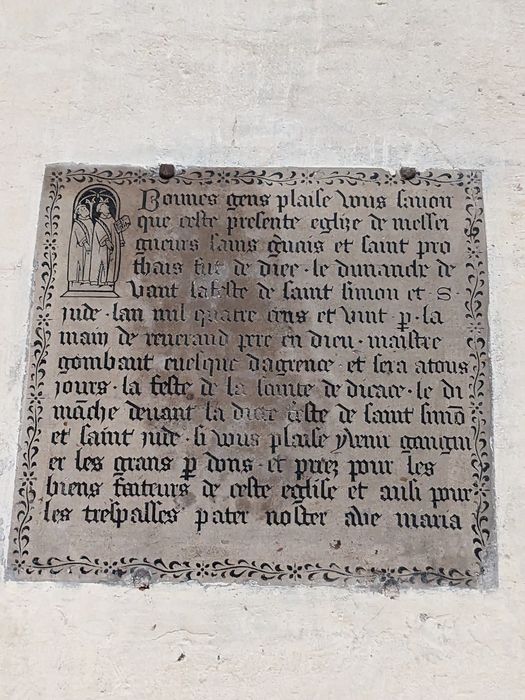 Bonnes gens plaise vous savoir
que ceste presente eglize de messei
gneurs sains gvais et saint pro
thais fut de diee · le dimanche de
vant la feste de saint simon et S ·
jude · lan mil quatre cens et vint p · la
main de reverand pere en dieu · maistre
gombaut evesque dagrence · et sera atous
jours · la feste de la sainte de dicace · le di
mâche devant la dicte feste de saint simō
et saint jude · si vous plaise y venir gangni
er les grans p dons · et priez pour les
biens faiteurs de ceste eglise et ausi pour
les trespasses pater noster ave maria